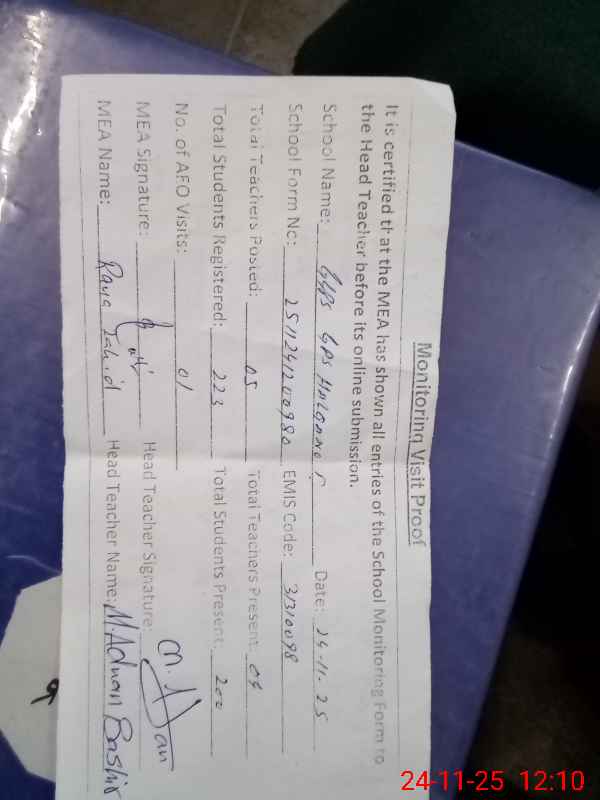 Monitoring Visit Proof
It is certified that the MEA has shown all entries of the School Monitoring Form to
the Head Teacher before its online submission.
School Name: GPS Date: 24-11-25
School Form No: 2511241200980 EMIS Code: 31310098
Total Teachers Posted: 05 Total Teachers Present: 04
Total Students Registered: 223 Total Students Present: 200
No. of AEO Visits: 01
MEA Signature: Head Teacher Signature:
MEA Name: Rana Head Teacher Name: M Adnan Bashir
24-11-25 12:10